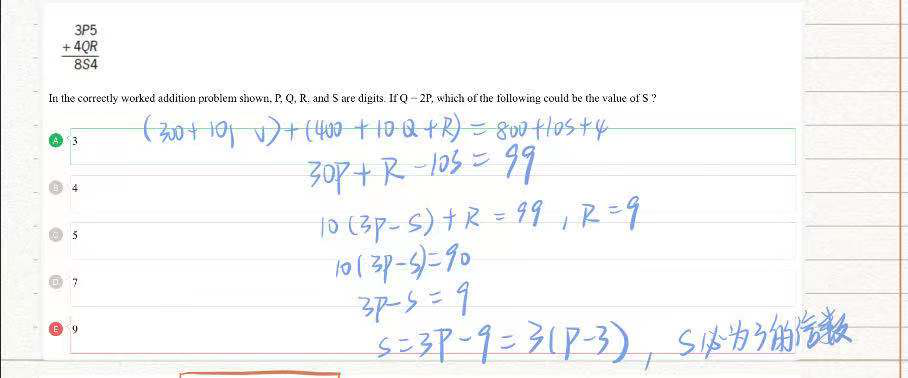 3P5
+ 4QR
8S4
In the correctly worked addition problem shown, P, Q, R, and S are digits. If Q = 2P, which of the following could be the value of S ?
(300+10
)+(400+10Q+R)=800+10S+4
A 3
30P+R-10S=99
B 4
10(3P-S)+R=99, R=9
C 5
10(3P-S)=90
D 7
3P-S=9
E 9
S=3P-9=3(P-3), S必为3的倍数